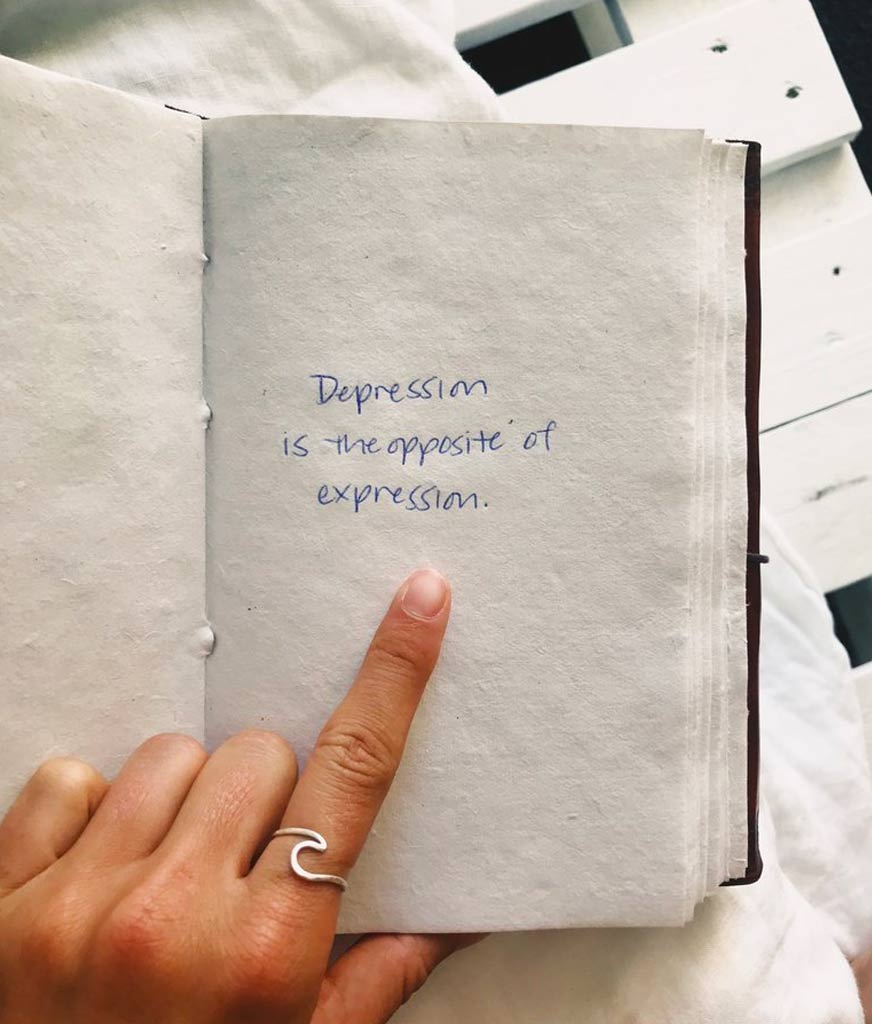 Depression
is the opposite of
expression.